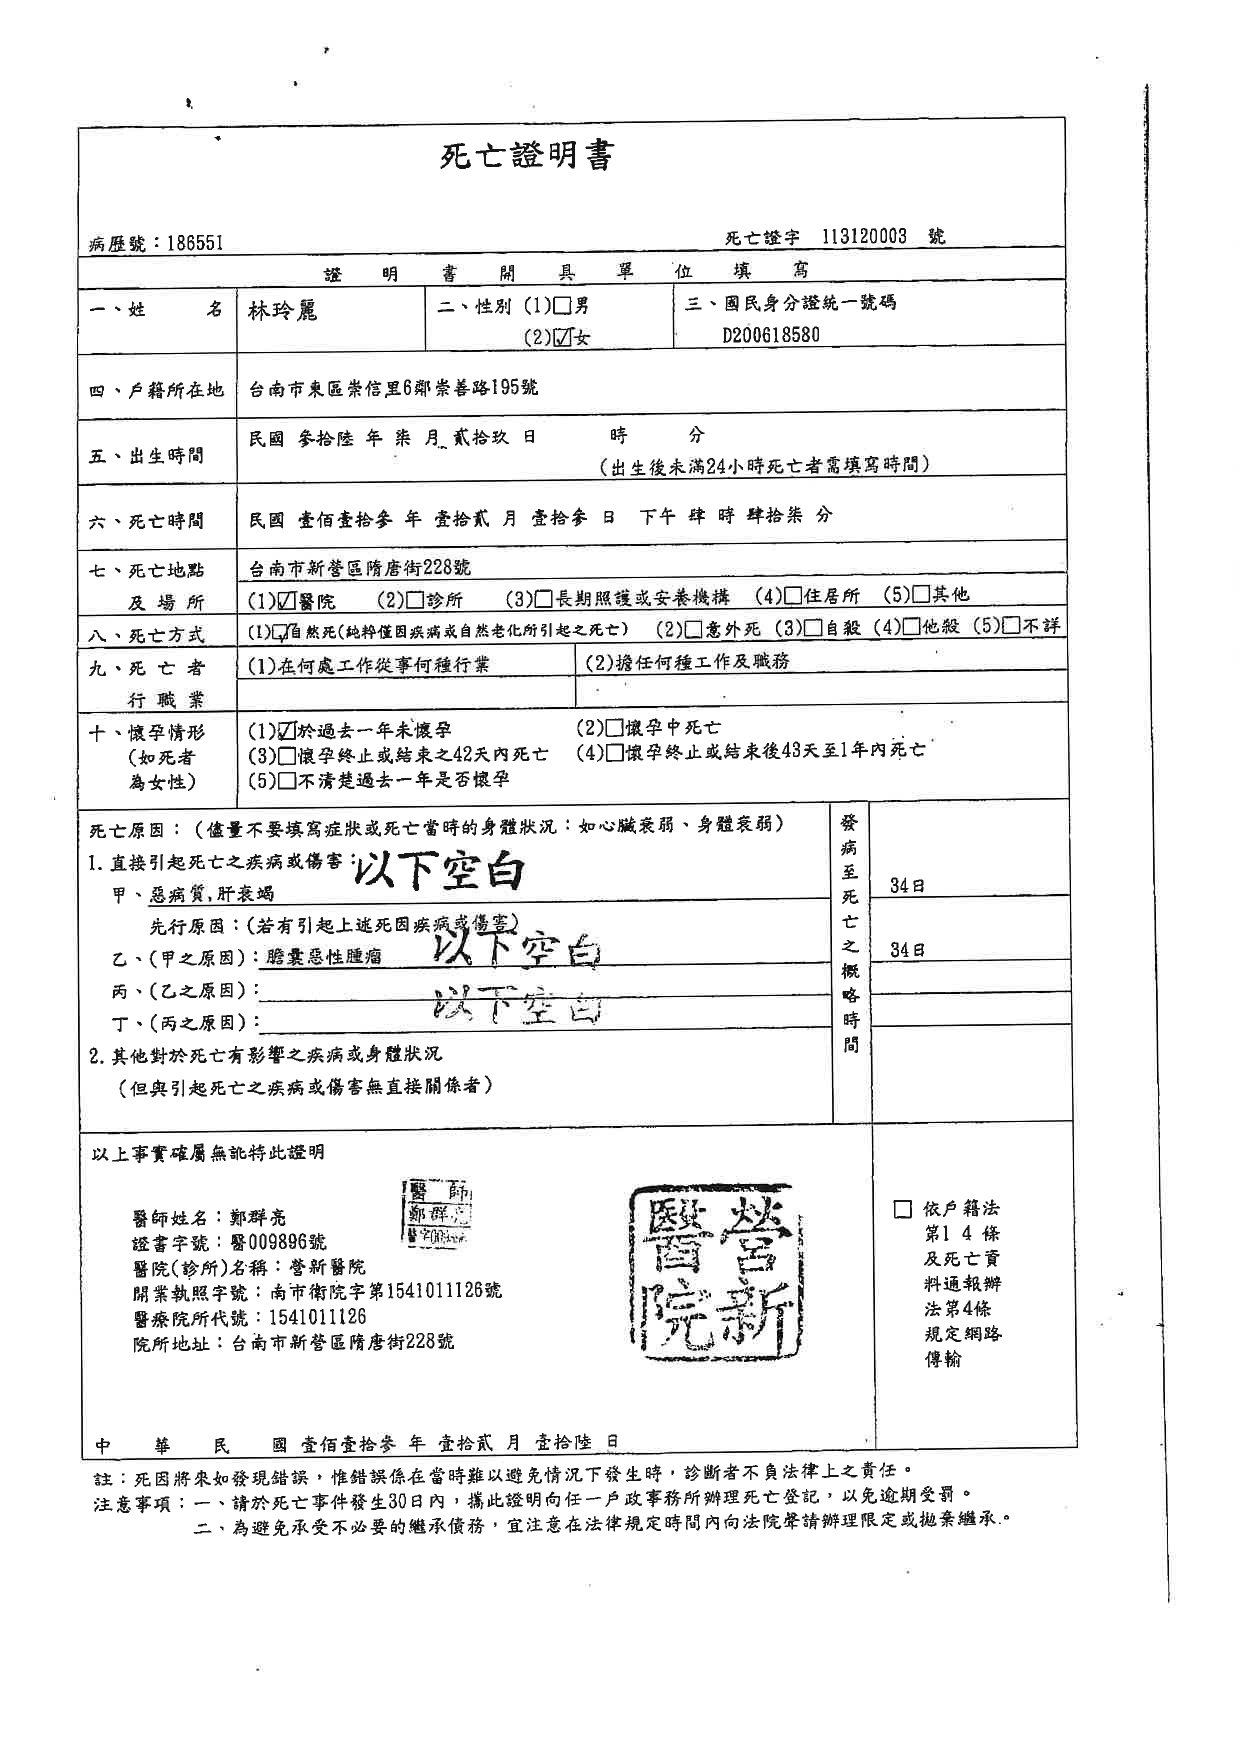 死亡證明書
病歷號：186551 死亡證字 113120003 號
證明書開具單位填寫
一、姓名 林玲麗 二、性別 (1)☐男 三、國民身分證統一號碼
(2)☑女 D200618580
四、戶籍所在地 台南市東區崇信里6鄰崇善路195號
五、出生時間 民國 參拾陸 年 柒 月 貳拾玖 日 時 分
(出生後未滿24小時死亡者需填寫時間)
六、死亡時間 民國 壹佰壹拾參 年 壹拾貳 月 壹拾參 日 下午 肆 時 肆拾柒 分
七、死亡地點 台南市新營區隋唐街228號
及場所 (1)☑醫院 (2)☐診所 (3)☐長期照護或安養機構 (4)☐住居所 (5)☐其他
八、死亡方式 (1)☑自然死(純粹僅因疾病或自然老化所引起之死亡) (2)☐意外死 (3)☐自殺 (4)☐他殺 (5)☐不詳
九、死亡者 (1)在何處工作從事何種行業 (2)擔任何種工作及職務
行職業
十、懷孕情形 (1)☑於過去一年未懷孕 (2)☐懷孕中死亡
(如死者 (3)☐懷孕終止或結束之42天內死亡 (4)☐懷孕終止或結束後43天至1年內死亡
為女性) (5)☐不清楚過去一年是否懷孕
死亡原因：(儘量不要填寫症狀或死亡當時的身體狀況：如心臟衰弱、身體衰弱) 發病至死亡之概略時間
1.直接引起死亡之疾病或傷害： 以下空白
甲、惡病質,肝衰竭 34日
先行原因：(若有引起上述死因疾病或傷害)
乙、(甲之原因)：膽囊惡性腫瘤 以下空白 34日
丙、(乙之原因)： 以下空白
丁、(丙之原因)：
2.其他對於死亡有影響之疾病或身體狀況
(但與引起死亡之疾病或傷害無直接關係者)
以上事實確屬無訛特此證明
醫師
鄭群亮
醫師姓名：鄭群亮
證書字號：醫009896號
醫院(診所)名稱：營新醫院
開業執照字號：南市衛院字第1541011126號
醫療院所代號：1541011126
院所地址：台南市新營區隋唐街228號
營新醫院
☐ 依戶籍法
第14條
及死亡資
料通報辦
法第4條
規定網路
傳輸
中華民國 壹佰壹拾參 年 壹拾貳 月 壹拾陸 日
註：死因將來如發現錯誤，惟錯誤係在當時難以避免情況下發生時，診斷者不負法律上之責任。
注意事項：一、請於死亡事件發生30日內，攜此證明向任一戶政事務所辦理死亡登記，以免逾期受罰。
二、為避免承受不必要的繼承債務，宜注意在法律規定時間內向法院聲請辦理限定或拋棄繼承。